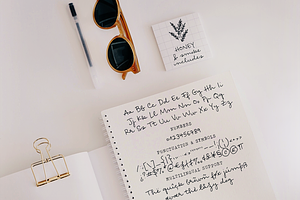 HONEY
& smoke
includes
Aa Bb Cc Dd Ee Ff Gg Hh Ii
Jj Kk Ll Mm Nn Oo Pp Qq
Rr Ss Tt Uu Vv Ww Xx Yy Zz
NUMBERS
PUNCTUATION & SYMBOLS
MULTILINGUAL SUPPORT
The quick brown fox jumps
over the lazy dog